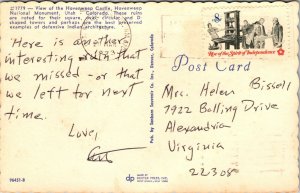 #1779 - View of the Hovenweep Castle, Hovenweep
National Monument, Utah - Colorado. These ruins
are noted for their square, oval, circular and D
shaped towers and perhaps are the best examples
of defensive Indian architecture.
Here is another
interesting ruin that
we missed - or that
we left for next
time.
Love,
96451-B
Pub. by Sanborn Souvenir Co., Inc., Denver, Colorado
dp
DEXTER PRESS, INC.
8
Rise of the Spirit of Independence
Post Card
Mrs. Helen Bissell
7922 Bolling Drive
Alexandria
Virginia
22308